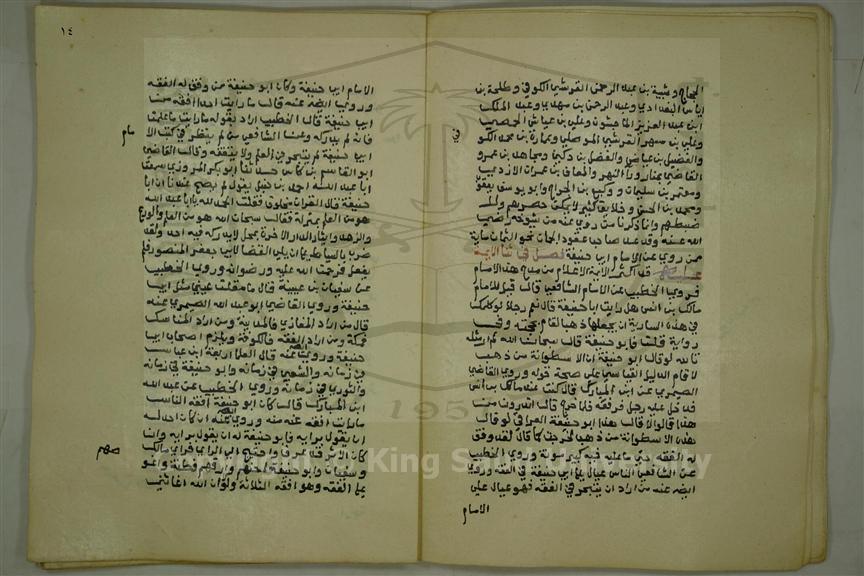 الحجاج وشيبة بن عبد الرحمن القرشي الكوفي وطلحة بن
اياس البغدادي وعبد الرحمن بن مهدي وعبد الملك
ابن عبد العزيز الماجشون وعلي بن عياش الحمصي
وعلي بن مسهر القرشي الموصلي وعمارة بن محمد الكو
في
والفضيل بن عياض والفضل بن دكين ومجاهد بن عمرو
القاضي بما وراء النهر والمعافى بن عمران الازدي
ومعتمر بن سليمان ووكيع بن الجراح وابو يوسف يعقو
ومحمد بن الحسن وخلايق كثير لا يمكن حصرهم ولا
ضبطهم وانما ذكرنا من روى عنه من شيوخه رضي
الله عنه وقد عد صاحب عقود الجمان نحو الثمان ماية
ممن روى عن الامام ابي حنيفة فصل في ثنا الايمة
عليه قد اكثر الايمة الاعلام من مدح هذا الامام
فروى الخطيب عن الامام الشافعي قال قيل للامام
مالك بن انس هل رايت ابا حنيفة قال نعم رجلا لو كلمك
في هذه السارية ان يجعلها ذهبا لقام بحجته وفي
رواية قلت فابو حنيفة قال سبحان الله لم ار مثله
تالله لو قال ابو حنيفة ان الاسطوانة من ذهب
لاقام الدليل القياسي على صحة قوله وروى القاضي
الصيمري عن ابن المبارك قال كنت عند مالك بن انس
فدخل عليه رجل فرفعه فلما خرج قال اتدرون من
هذا قالوا لا قال هذا ابو حنيفة العراقي لو قال
هذه الاسطوانة من ذهب لخرجت كما قال لقد وفق
له الفقه حتى ما عليه فيه كبير مونة وروى الخطيب
عن الشافعي الناس عيال على ابي حنيفة في الفقه وروى
ايضه عنه من اراد ان يتبحر في الفقه فهو عيال على
الامام
١٤
الامام ابي حنيفة وكان ابو حنيفة ممن وفق له الفقه
وروى ايضه عنه قال ما رايت احدا افقه من
ابي حنيفة قال الخطيب اراد بقوله ما رايت ما علمت
فانه لم يدركه وعن الشافعي من لم ينظر في كتب الا
مام
ابي حنيفة لم يتبحر في العلم ولا يتفقه وقال القاضي
ابو القاسم بن كاس حدثنا ابو بكر المروزي سمعت
ابا عبد الله احمد بن حنبل يقول لم يصح عندنا ان ابا
حنيفة قال القران مخلوق فقلت الحمد لله يا ابا عبد الله
هو من العلم بمنزلة فقال سبحان الله هو من العلم والورع
والزهد وايثار الدار الاخرة بمحل لا يدركه فيه احد ولقد
ضرب بالسياط على ان يلي القضا لابي جعفر المنصور فلم
يفعل فرحمة الله عليه ورضوانه وروى الخطيب
عن سفيان بن عيينة قال ما مقلت عيني مثل ابي
حنيفة وروى القاضي ابو عبد الله الصيمري عنه
قال من اراد المغازي فالمدينة ومن اراد المناسك
فمكة ومن اراد الفقه فالكوفة ويلزم اصحاب ابي
حنيفة وروى عنه قال العلما اربعة ابن عباس
في زمانه والشعبي في زمانه وابو حنيفة في زمانه
والثوري في زمانه وروى الخطيب عن عبد الله
ابن المبارك قال كان ابو حنيفة افقه الناس
ما رايت افقه منه وروى عنه ان كان احد له
ان يقول برايه فابو حنيفة له ان يقول برايه وان
كان الاثر قد عرف واحتج الى الراي فراي مالك
وسفيان وابو حنيفة احسنهم وارقهم فطنة واغو
صهم
على الفقه وهو افقه الثلاثة ولولا ان الله اغاثني
King S
y
195